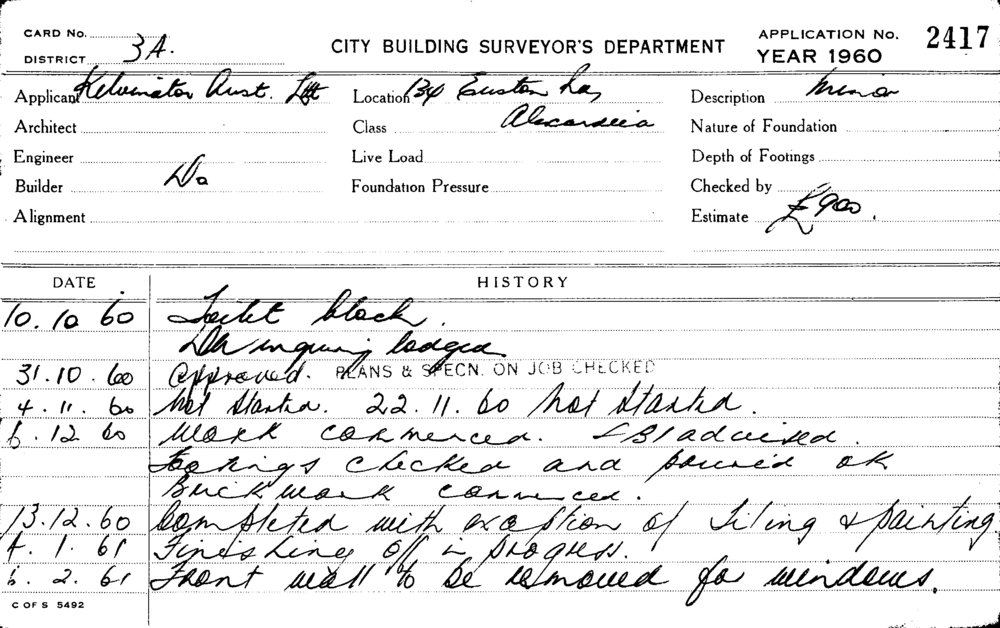 CARD No.
DISTRICT 3A.
CITY BUILDING SURVEYOR'S DEPARTMENT
APPLICATION No. 2417
YEAR 1960
Applicant Kelvinator Aust. Ltd
Location 134 Euston Rd,
Description Minor
Architect
Class Alexandria
Nature of Foundation
Engineer
Live Load
Depth of Footings
Builder Do
Foundation Pressure
Checked by
Alignment
Estimate £900.
DATE HISTORY
10.10 60 Toilet block.
DA inquiry lodged
31.10.60 approved. PLANS & SPECN. ON JOB CHECKED
4.11.60 Not started. 22.11.60 Not started.
6.12 60 Work commenced. advised.
Footings checked and poured ok
Brickwork commenced.
13.12.60 Completed with exception of tiling & painting.
4.1.61 Finishing off in progress.
6.2.61 Front wall to be removed for windows.
C OF S 5492